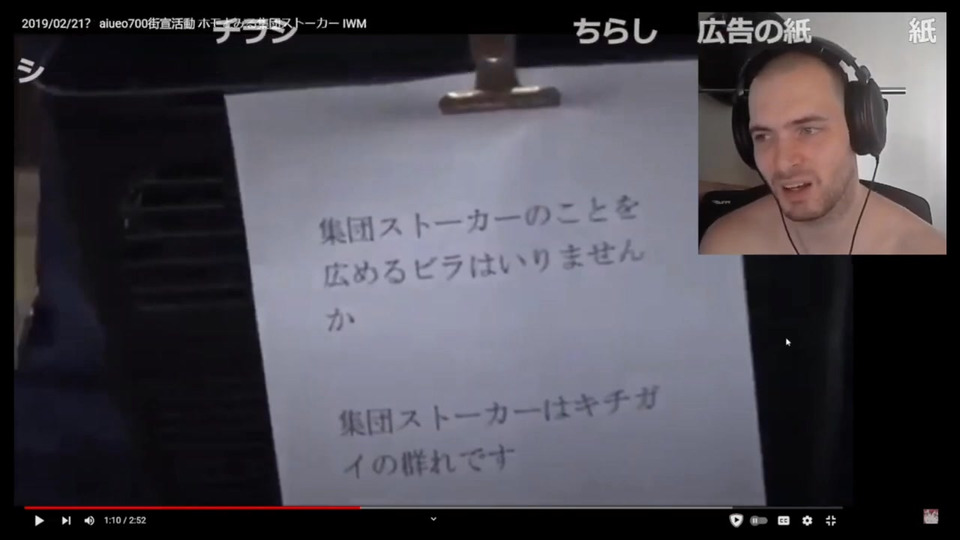 2019/02/21? aiueo700街宣活動 ホモよみの集団ストーカー IWM
チラシ
ちらし
広告の紙
紙
シ
集団ストーカーのことを
広めるビラはいりません
か
集団ストーカーはキチガ
イの群れです
1:10 / 2:52